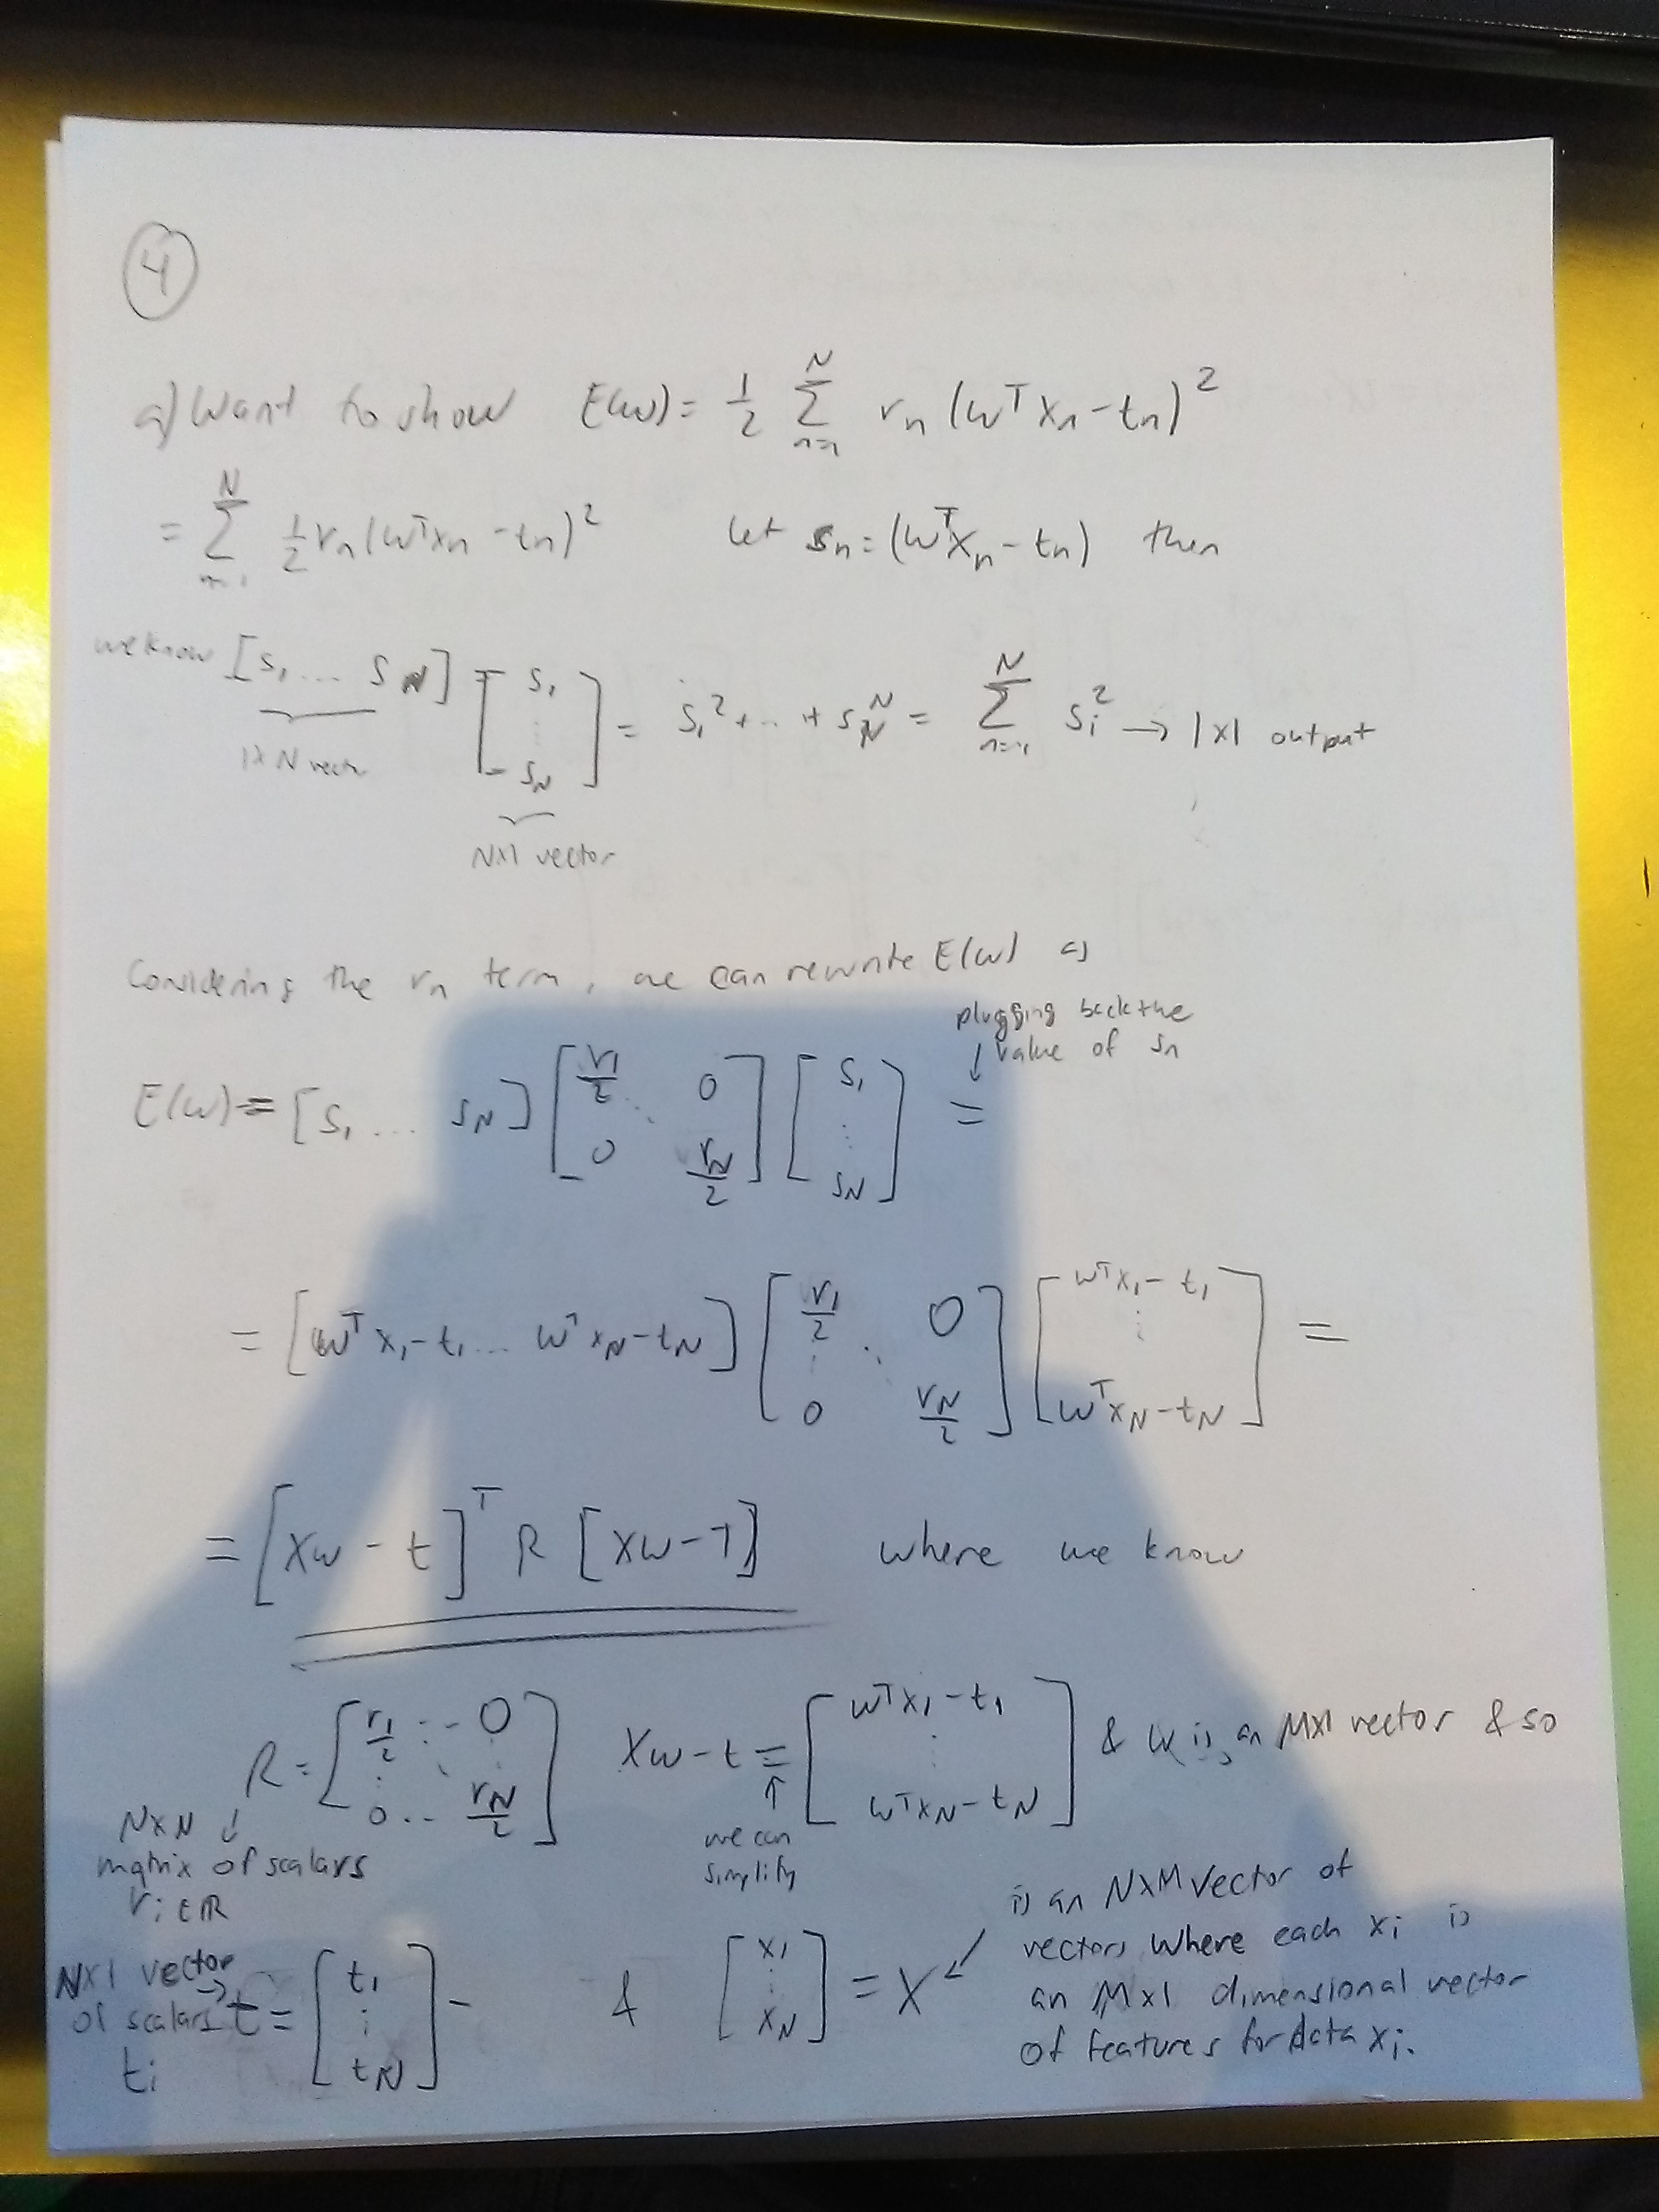 4
a) Want to show E(w) = 1/2 Σ_{n=1}^{N} r_n (w^T x_n - t_n)^2
= Σ_{n=1}^{N} 1/2 r_n (w^T x_n - t_n)^2   let s_n = (w^T x_n - t_n) then
we know [s_1 ... s_N] [s_1 ⋮ s_N] = s_1^2 + ... + s_N^N = Σ_{n=1}^{N} s_i^2 → 1x1 output
1xN vector
Nx1 vector
Considering the r_n term, we can rewrite E(w) as
plugging back the
↓ value of s_n
E(w) = [s_1 ... s_N] [r_1/2 0 ⋱ 0 r_N/2] [s_1 ⋮ s_N] =
= [w^T x_1 - t_1 ... w^T x_N - t_N] [r_1/2 0 ⋮ ⋱ 0 r_N/2] [w^T x_1 - t_1 ⋮ w^T x_N - t_N] =
= [Xw - t]^T R [Xw - T] where we know
R = [r_1/2 ... 0 ⋮ ⋱ ⋮ 0 ... r_N/2]   Xw - t = [w^T x_1 - t_1 ⋮ w^T x_N - t_N] & w is an Mx1 vector & so
↑ we can
simplify
NxN ↓
matrix of scalars
r_i ∈ ℝ
Nx1 vector →
of scalars t = [t_1 ⋮ t_N] -   & [x_1 ⋮ x_N] = X ↙
t_i
is an NxM vector of
vectors where each x_i is
an Mx1 dimensional vector
of features for data x_i.